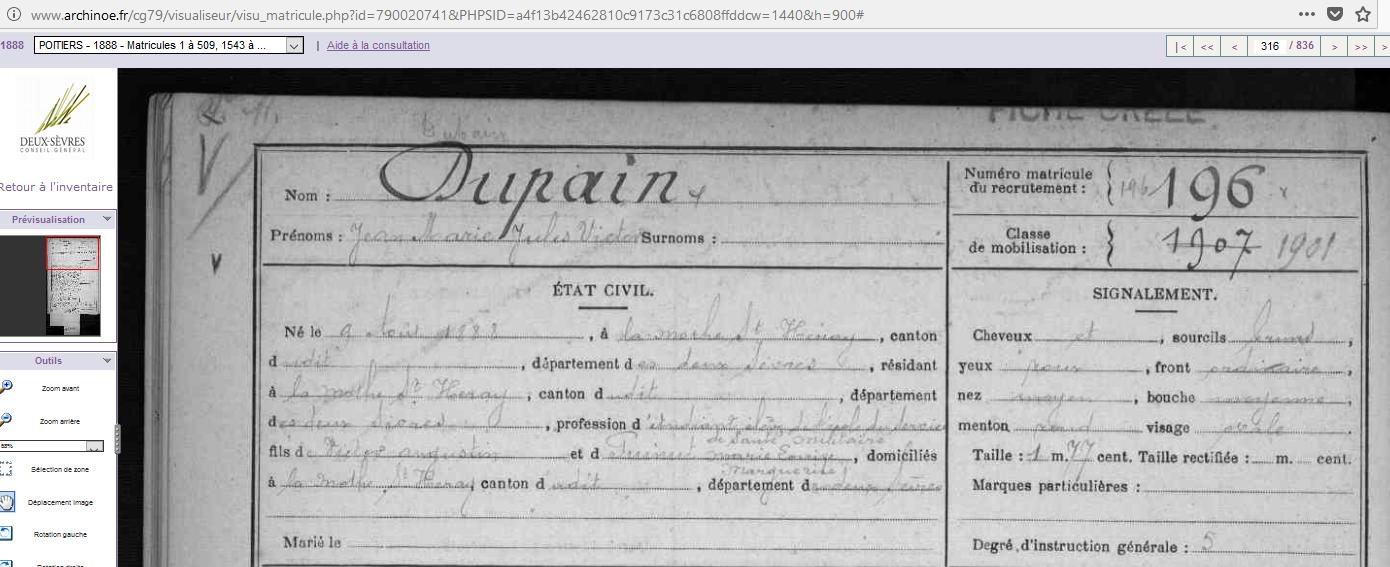 www.archinoe.fr/cg79/visualiseur/visu_matricule.php?id=790020741&PHPSID=a4f13b42462810c9173c31c6808ffddcw=1440&h=900#
1888 POITIERS - 1888 - Matricules 1 à 509, 1543 à ... | Aide à la consultation
|< << < 316 / 836 > >> >
DEUX-SÈVRES
CONSEIL GÉNÉRAL
Retour à l'inventaire
Prévisualisation
Outils
Zoom avant
Zoom arrière
Sélection de zone
Déplacement image
Rotation gauche
Rotation droite
FICHE CRÉÉE
Nom : Dupain
Numéro matricule
du recrutement : 196 196
Prénoms : Jean Marie Jules Victor Surnoms :
Classe
de mobilisation : 1907 1901
ÉTAT CIVIL.
SIGNALEMENT.
Né le 9 août 1888, à la mothe St Heray, canton
d udit, département des deux sèvres, résidant
à la mothe St Heray, canton d udit, département
des deux sèvres, profession d'étudiant élève de l'école du service
de santé militaire
fils de Victor augustin et d marie Louise, domiciliés
Marguerite
à la mothe St Heray canton d udit, département des deux sèvres
Marié le
Cheveux et, sourcils
yeux, front ordinaire,
nez moyen, bouche moyenne,
menton rond visage ovale
Taille : 1 m. 77 cent. Taille rectifiée : m. cent.
Marques particulières :
Degré d'instruction générale : 5